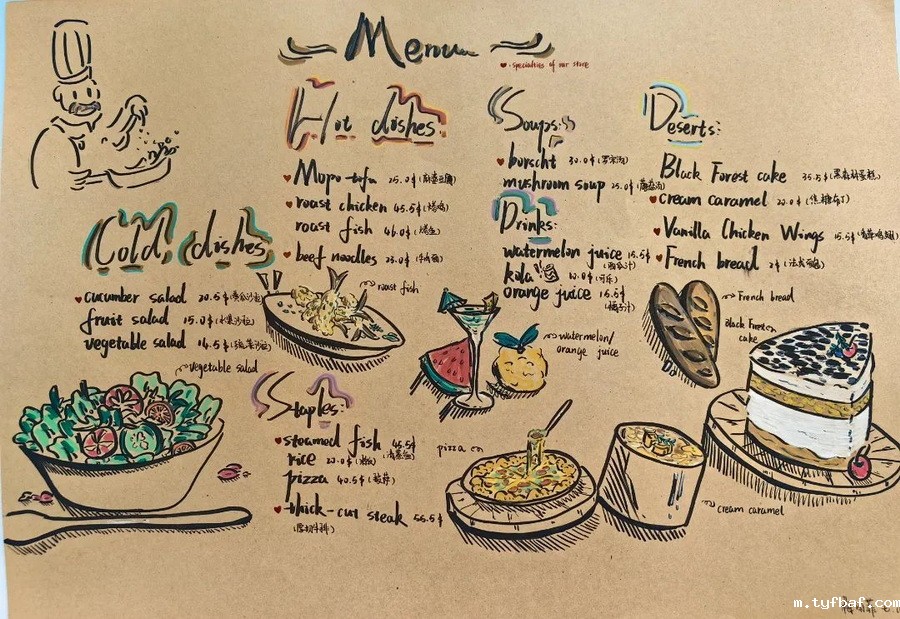 Menu
♥ : specialties of our store
Hot dishes:
♥ Mapo tofu 25.0$ (麻婆豆腐)
♥ roast chicken 45.5$ (烤鸡)
roast fish 46.0$ (烤鱼)
♥ beef noodles 23.0$ (牛肉面)
Soups:
♥ borscht 30.0$ (罗宋汤)
mushroom soup 25.0$ (蘑菇汤)
Drinks:
watermelon juice 15.5$
(西瓜汁)
kola 10.0$ (可乐)
orange juice 15.5$
(橘子汁)
Deserts:
Black Forest cake 35.5$ (黑森林蛋糕)
♥ cream caramel 20.0$ (焦糖布丁)
♥ Vanilla Chicken Wings 15.5$
♥ French bread 2$
Cold dishes
♥ cucumber salad 20.5$ (黄瓜沙拉)
fruit salad 15.0$ (水果沙拉)
vegetable salad 14.5$ (蔬菜沙拉)
vegetable salad
roast fish
watermelon/
orange juice
French bread
Black Forest
cake
Staples:
♥ steamed fish 45.5$
(清蒸鱼)
rice 20.0$
pizza 40.5$ (披萨)
♥ thick-cut steak 55.5$
(厚切牛排)
pizza
cream caramel
m.tyfbaf.com